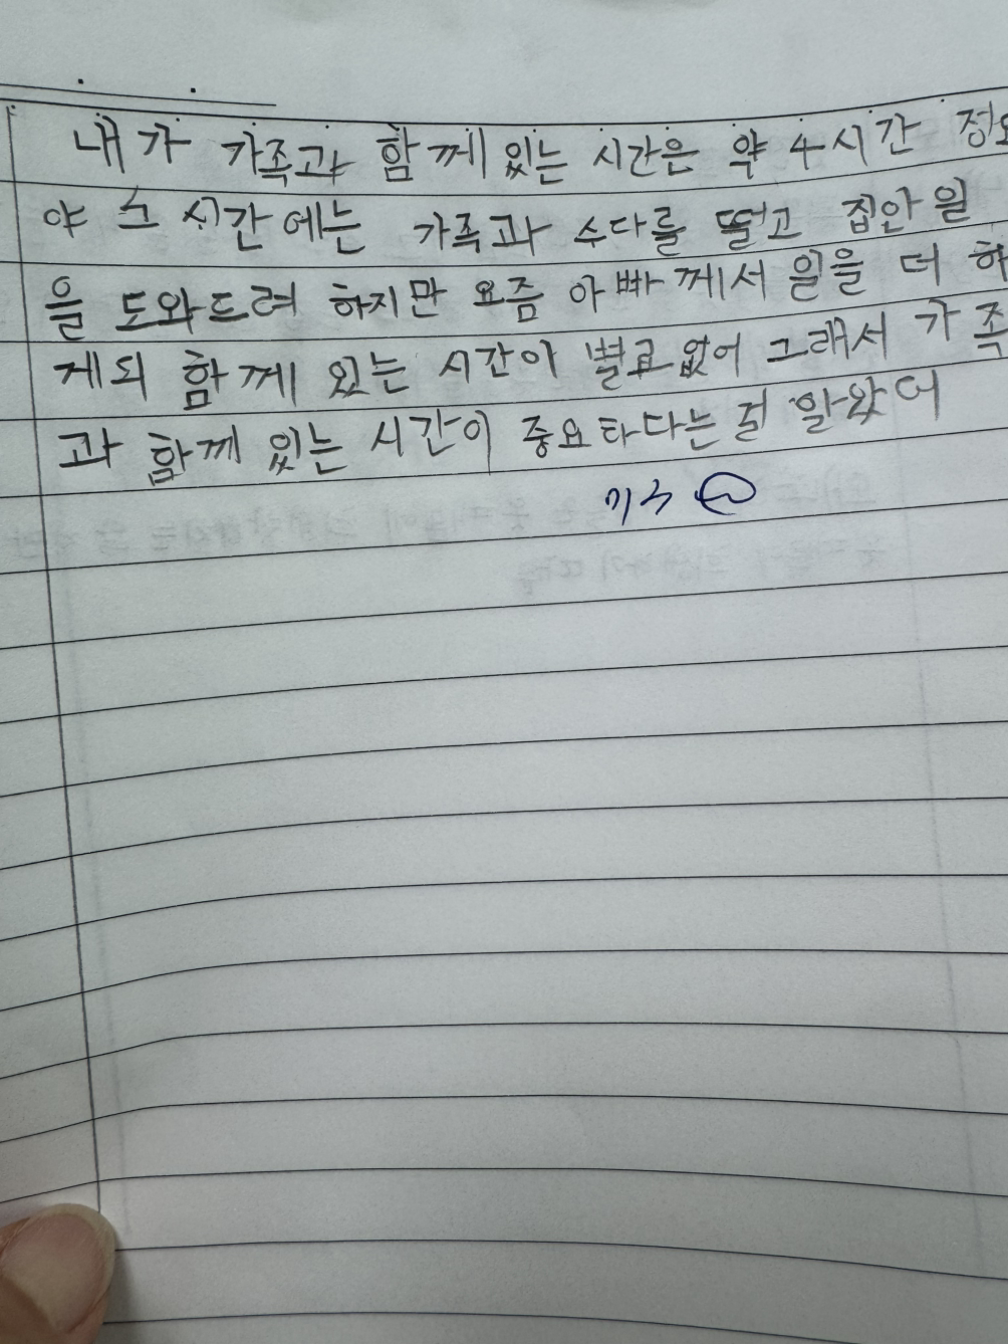 내가 가족과 함께 있는 시간은 약 4시간 정도
야 그 시간에는 가족과 수다를 떨고 집안일
을 도와드려 하지만 요즘 아빠께서 일을 더 하
게되 함께 있는 시간이 별로없어 그래서 가족
과 함께 있는 시간이 중요하다는 걸 알았어